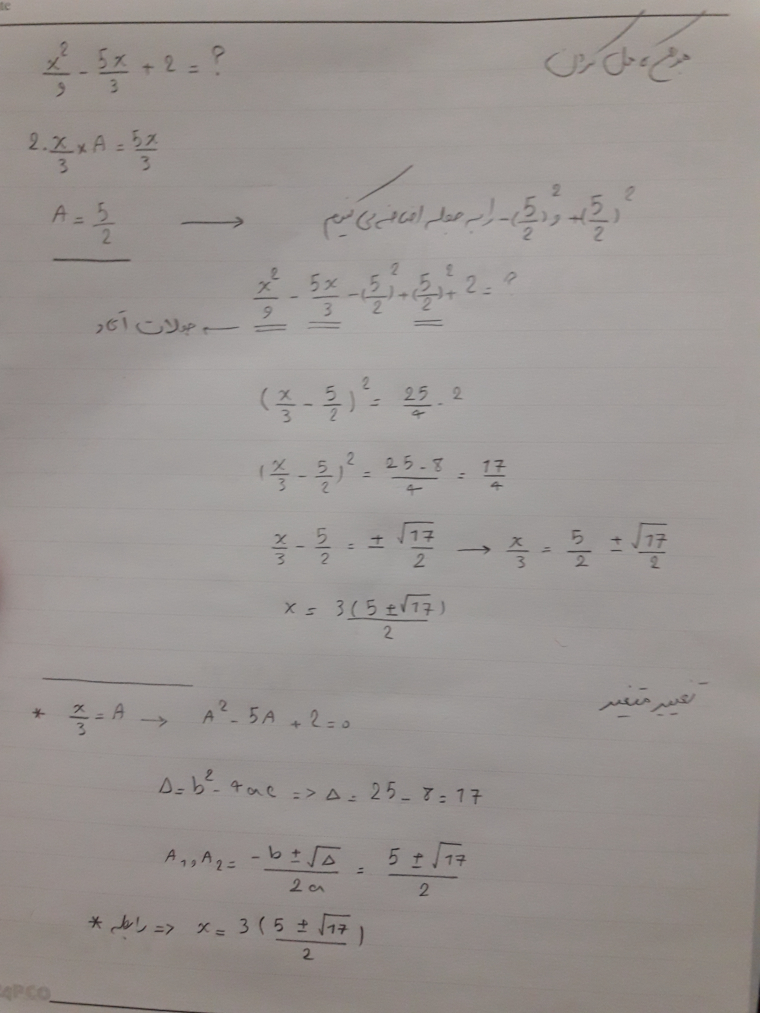 مربع کامل کردن
x²/9 - 5x/3 + 2 = ?
2.x/3 × A = 5x/3
A = 5/2 → +(5/2)² و -(5/2)² را به جمله اضافه می کنیم
x²/9 - 5x/3 - (5/2)² + (5/2)² + 2 = ?
← جملات اتحاد
(x/3 - 5/2)² = 25/4 - 2
(x/3 - 5/2)² = (25-8)/4 = 17/4
x/3 - 5/2 = ± √17/2 → x/3 = 5/2 ± √17/2
x = 3(5 ± √17)/2
تغییر متغیر
* x/3 = A → A² - 5A + 2 = 0
Δ = b² - 4ac => Δ = 25 - 8 = 17
A₁, A₂ = (-b ± √Δ)/2a = (5 ± √17)/2
* رابطه => x = 3((5 ± √17)/2)